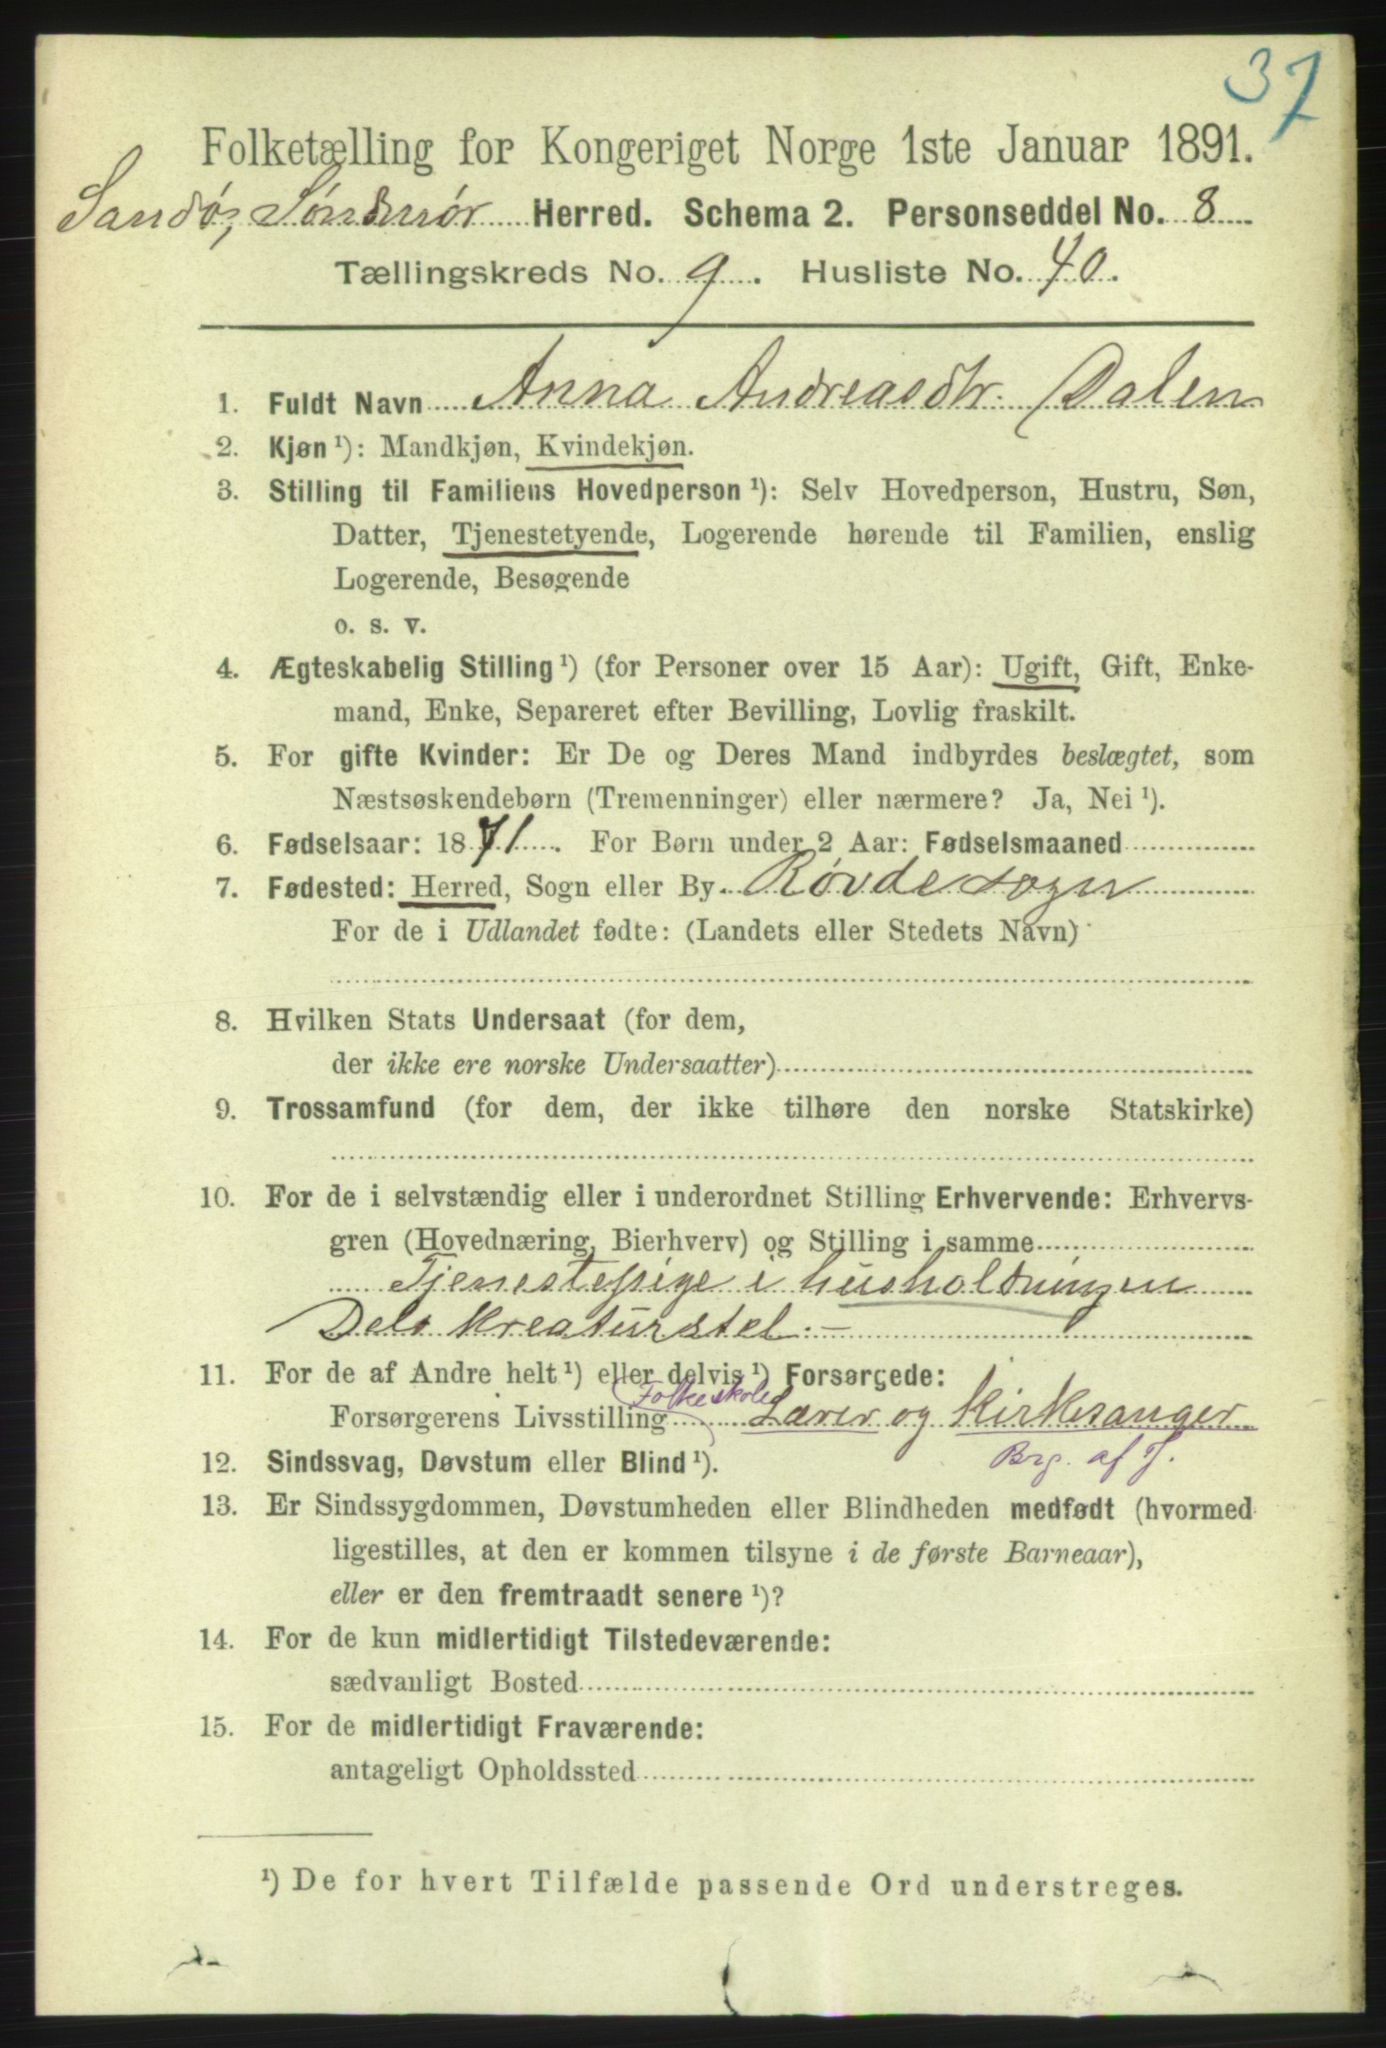 37
Folketælling for Kongeriget Norge 1ste Januar 1891.
Sandø, Søndmør Herred. Schema 2. Personseddel No. 8
Tællingskreds No. 9. Husliste No. 40.
1. Fuldt Navn Anna Andreasdtr. Dalen
2. Kjøn ¹): Mandkjøn, Kvindekjøn.
3. Stilling til Familiens Hovedperson ¹): Selv Hovedperson, Hustru, Søn,
Datter, Tjenestetyende, Logerende hørende til Familien, enslig
Logerende, Besøgende
o. s. v.
4. Ægteskabelig Stilling ¹) (for Personer over 15 Aar): Ugift, Gift, Enke-
mand, Enke, Separeret efter Bevilling, Lovlig fraskilt.
5. For gifte Kvinder: Er De og Deres Mand indbyrdes beslægtet, som
Næstsøskendebørn (Tremenninger) eller nærmere? Ja, Nei ¹).
6. Fødselsaar: 1871. For Børn under 2 Aar: Fødselsmaaned
7. Fødested: Herred, Sogn eller By Røvde sogn
For de i Udlandet fødte: (Landets eller Stedets Navn)
8. Hvilken Stats Undersaat (for dem,
der ikke ere norske Undersaatter)
9. Trossamfund (for dem, der ikke tilhøre den norske Statskirke)
10. For de i selvstændig eller i underordnet Stilling Erhvervende: Erhvervs-
gren (Hovednæring, Bierhverv) og Stilling i samme
Tjenestepige i husholdningen
Dels kreaturstel. —
11. For de af Andre helt ¹) eller delvis ¹) Forsørgede:
Folkeskole
Forsørgerens Livsstilling Lærer og Kirkesanger
Brg. af J.
12. Sindssvag, Døvstum eller Blind ¹).
13. Er Sindssygdommen, Døvstumheden eller Blindheden medfødt (hvormed
ligestilles, at den er kommen tilsyne i de første Barneaar),
eller er den fremtraadt senere ¹)?
14. For de kun midlertidigt Tilstedeværende:
sædvanligt Bosted
15. For de midlertidigt Fraværende:
antageligt Opholdssted
¹) De for hvert Tilfælde passende Ord understreges.